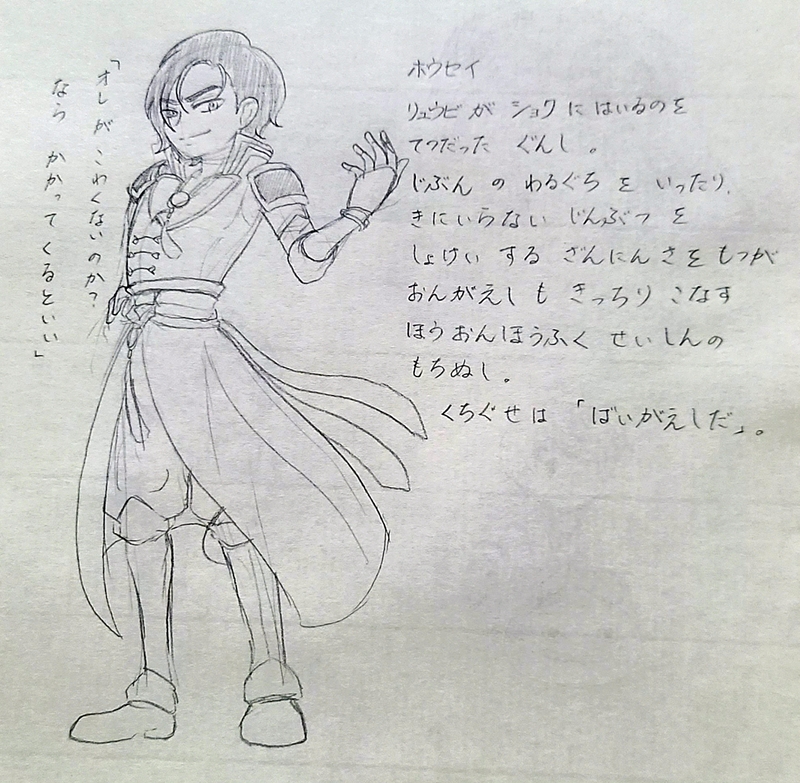 「オレが こわくないのか?
なら かかってくるといい」
ホウセイ
リュウビ が ショク に はいるのを
てつだった ぐんし 。
じぶん の わるぐち を いったり、
きにいらない じんぶつ を
しょけい する ざんにん さを もつが
おんがえし も きっちり こなす
ほうおんほうふく せいしんの
もちぬし。
くちぐせは 「ばいがえしだ」。